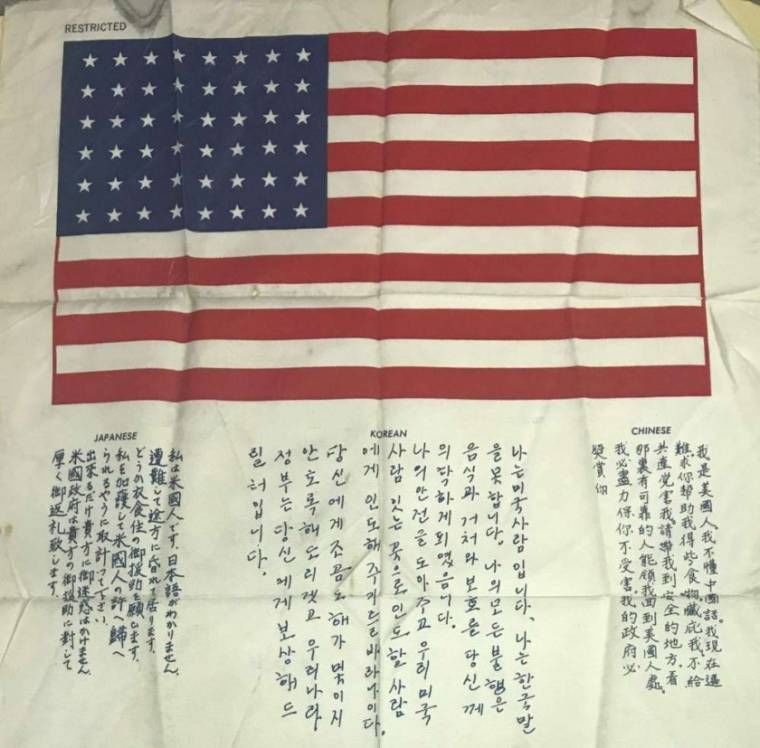 RESTRICTED
JAPANESE
私は米國人です。日本語がわかりません。
遭難して途方に暮れて居ります。
どうか衣食住の御援助を願ひます。
私を加護して米國人の許へ歸へ
られるやうに取計って下さい。
出來るだけ貴方に御迷惑はかけません。
米國政府は貴方の御援助に対して
厚く御返礼致します。
KOREAN
나는 미국사람입니다. 나는 한국말
을 못합니다. 나의 모든 불행은
음식과 거처와 보호를 당신께
의탁하게 되였음니다.
나의 안전을 도아주고 우리 미국
사람 잇는 곳으로 인도할 사람
에게 인도해 주기를 바라나이다.
당신에게 조곰도 해가 멫이지
안토록 해 드리겟고 우리나라
정부는 당신에게 보상해드
릴 터입니다.
CHINESE
我是美國人。我不懂中國話。我現在遇
難、求你幫助我得些食物、藏庇我、不給
共產党害我、請導我到安全的地方。看
那裏有可靠的人能領我回到美國人處。
我必盡力保你不受害。我的政府必
獎賞你